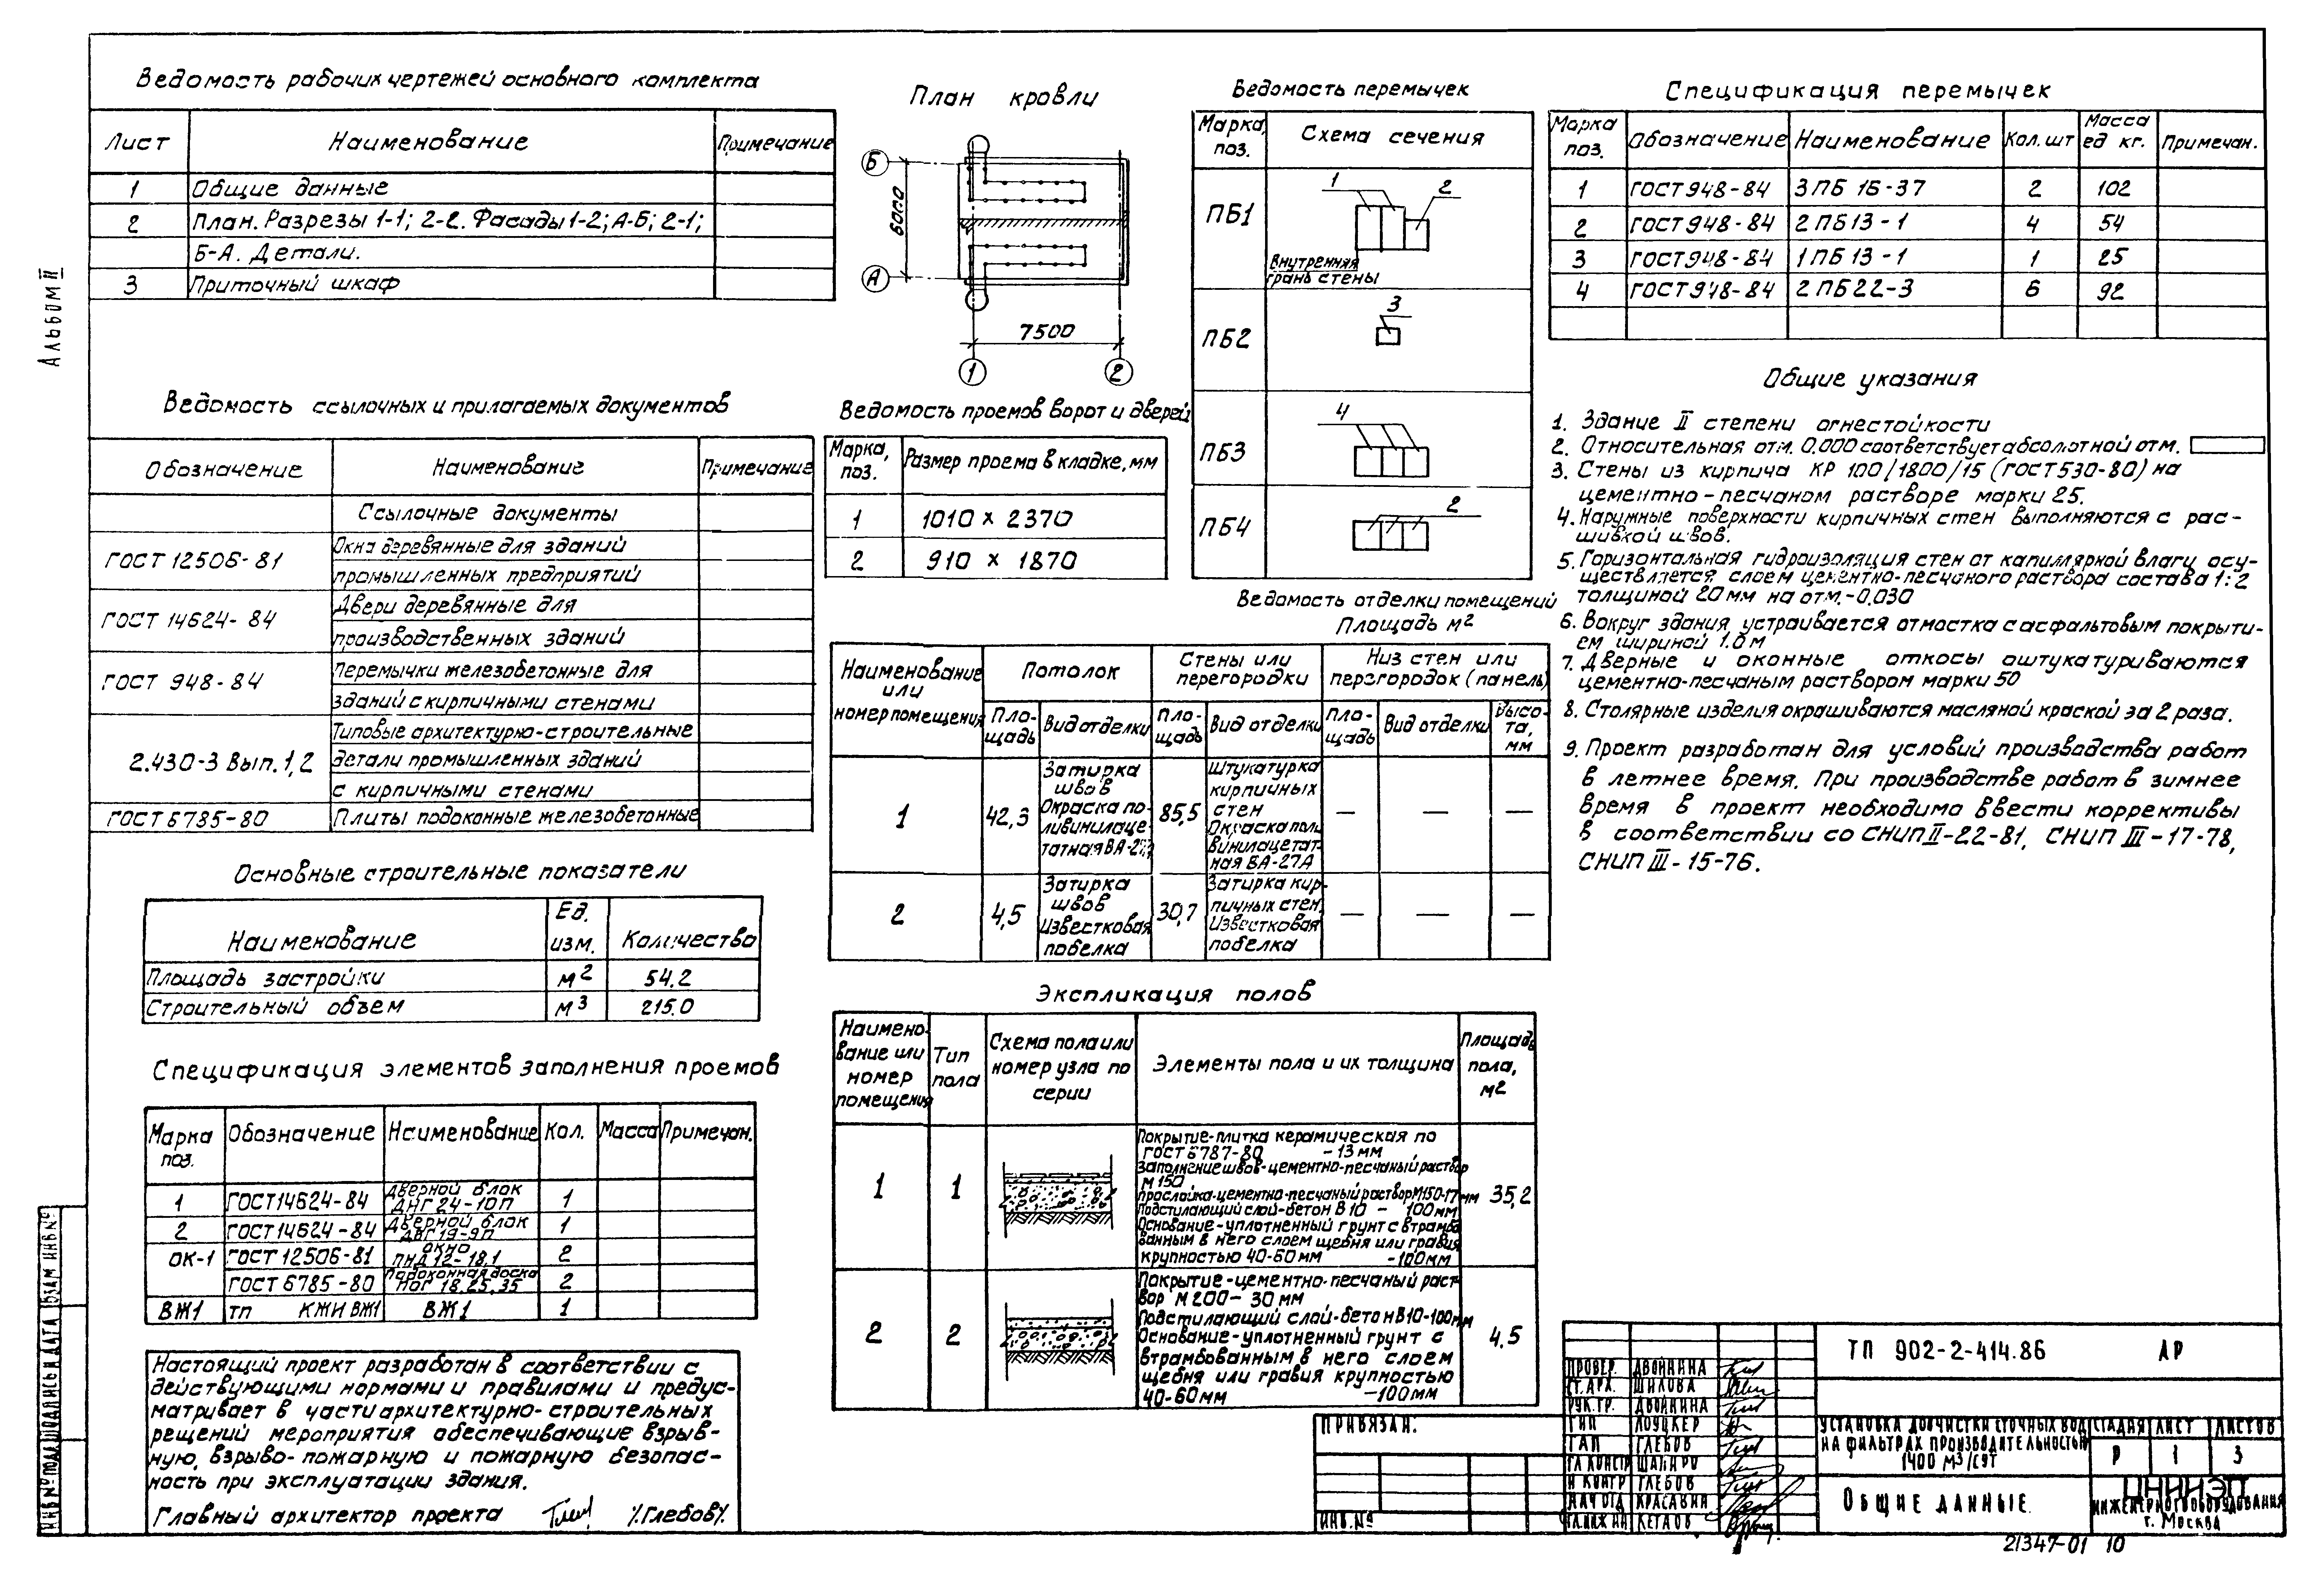 Альбом II
Ведомость рабочих чертежей основного комплекта
Лист Наименование Примечание
1 Общие данные
2 План. Разрезы 1-1; 2-2. Фасады 1-2; А-Б; 2-1;
Б-А. Детали.
3 Приточный шкаф
Ведомость ссылочных и прилагаемых документов
Обозначение Наименование Примечание
Ссылочные документы
ГОСТ 12506-81 Окна деревянные для зданий
промышленных предприятий
ГОСТ 14624-84 Двери деревянные для
производственных зданий
ГОСТ 948-84 Перемычки железобетонные для
зданий с кирпичными стенами
2.430-3 Вып. 1,2 Типовые архитектурно-строительные
детали промышленных зданий
с кирпичными стенами
ГОСТ 6785-80 Плиты подоконные железобетонные
Основные строительные показатели
Наименование Ед. изм. Количество
Площадь застройки м2 54.2
Строительный объем м3 215.0
Спецификация элементов заполнения проемов
Марка поз. Обозначение Наименование Кол. Масса Примечан.
1 ГОСТ 14624-84 Дверной блок ДНГ 24-10П 1
2 ГОСТ 14624-84 Дверной блок ДВГ 19-9П 1
ОК-1 ГОСТ 12506-81 окно ПНД 12-18.1 2
ГОСТ 6785-80 Подоконная доска ПОГ 18.25.35 2
ВЖ1 ТП КЖИ ВЖ1 ВЖ1 1
Настоящий проект разработан в соответствии с
действующими нормами и правилами и предус-
матривает в части архитектурно-строительных
решений мероприятия обеспечивающие взрыв-
ную, взрыво-пожарную и пожарную безопас-
ность при эксплуатации здания.
Главный архитектор проекта /Глебов/
План кровли
Б
А
6000
7500
1 2
Ведомость проемов ворот и дверей
Марка, поз. Размер проема в кладке, мм
1 1010 x 2370
2 910 x 1870
Ведомость перемычек
Марка, поз. Схема сечения
ПБ1 1 2
Внутренняя
грань стены
ПБ2 3
ПБ3 4
ПБ4 2
Ведомость отделки помещений
Площадь м2
Наименование или номер помещения Потолок Стены или перегородки Низ стен или перегородок (панель)
Площадь Вид отделки Площадь Вид отделки Площадь Вид отделки Высота, мм
1 42,3 Затирка швов Окраска поливинилацетатная ВА-27А 85,5 Штукатурка кирпичных стен Окраска поливинилацетатная ВА-27А — — —
2 4,5 Затирка швов Известковая побелка 30,7 Затирка кирпичных стен. Известковая побелка — — —
Экспликация полов
Наименование или номер помещения Тип пола Схема пола или номер узла по серии Элементы пола и их толщина Площадь пола, м2
1 1 35,2
Покрытие-плитка керамическая по
ГОСТ 6787-80 -13мм
Заполнение швов-цементно-песчаный раствор
М150
Прослойка-цементно-песчаный раствор М150-17мм
Подстилающий слой-бетон В10 - 100мм
Основание-уплотненный грунт с втрамбо
ванным в него слоем щебня или гравия
крупностью 40-60мм -100мм
2 2 4,5
Покрытие-цементно-песчаный раст-
вор М200-30мм
Подстилающий слой-бетон В10-100мм
Основание-уплотненный грунт с
втрамбованным в него слоем
щебня или гравия крупностью
40-60мм -100мм
Спецификация перемычек
Марка поз. Обозначение Наименование Кол. шт Масса ед кг. Примечан.
1 ГОСТ 948-84 3ПБ 16-37 2 102
2 ГОСТ 948-84 2ПБ 13-1 4 54
3 ГОСТ 948-84 1ПБ 13-1 1 25
4 ГОСТ 948-84 2ПБ 22-3 6 92
Общие указания
1. Здание II степени огнестойкости
2. Относительная отм. 0.000 соответствует абсолютной отм.
3. Стены из кирпича КР 100/1800/15 (ГОСТ 530-80) на
цементно-песчаном растворе марки 25.
4. Наружные поверхности кирпичных стен выполняются с рас-
шивкой швов.
5. Горизонтальная гидроизоляция стен от капиллярной влаги осу-
ществляется слоем цементно-песчаного раствора состава 1:2
толщиной 20мм на отм. -0.030
6. Вокруг здания устраивается отмостка с асфальтовым покрыти-
ем шириной 1.0м
7. Дверные и оконные откосы оштукатуриваются
цементно-песчаным раствором марки 50
8. Столярные изделия окрашиваются масляной краской за 2 раза.
9. Проект разработан для условий производства работ
в летнее время. При производстве работ в зимнее
время в проект необходимо ввести коррективы
в соответствии со СНИП II-22-81, СНИП III-17-78,
СНИП III-15-76.
Привязан:
Инв. №
Провер. Двойнина
Ст. арх. Шилова
Рук. гр. Двойнина
ГИП Лоуцкер
ГАП Глебов
Гл. констр Шапиро
Н контр Глебов
Нач отд Красавин
Гл. инж ин Кетаов
ТП 902-2-414.86 АР
Установка доочистки сточных вод
на фильтрах производительностью
1400 м3/сут
Стадия Лист Листов
Р 1 3
Общие данные.
ЦНИИЭП
инженерного оборудования
г. Москва
21347-01 10
Инв № подл Подпись и дата Взам инв №